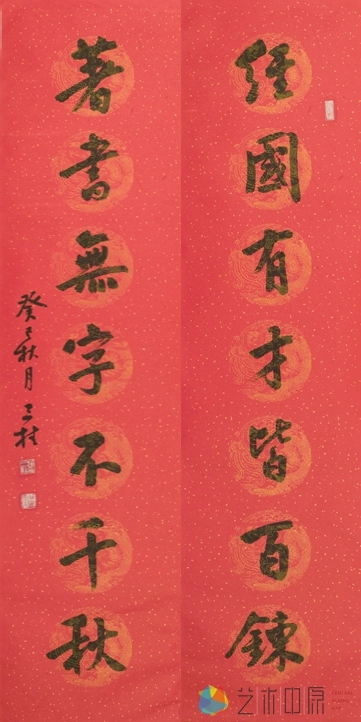 經國有才皆百鍊
著書無字不千秋
癸巳秋月
艺术中原